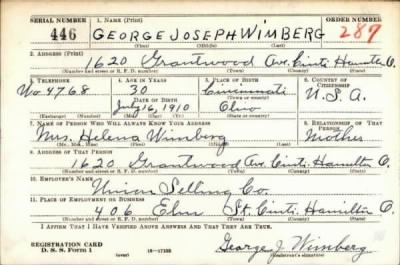 SERIAL NUMBER 1. NAME (Print) ORDER NUMBER
446 GEORGE JOSEPH WIMBERG 287
(First) (Middle) (Last)
2. ADDRESS (Print)
1620 Grantwood Av. Cinti Hamilton O.
(Number and street or R. F. D. number) (Town) (County) (State)
3. TELEPHONE 4. AGE IN YEARS 5. PLACE OF BIRTH 6. COUNTRY OF CITIZENSHIP
Wo 4768 30 Cincinnati U.S.A.
DATE OF BIRTH (Town or county)
July 16, 1910 Ohio
(Exchange) (Number) (Mo.) (Day) (Yr.) (State or country)
7. NAME OF PERSON WHO WILL ALWAYS KNOW YOUR ADDRESS 8. RELATIONSHIP OF THAT PERSON
Mrs. Helena Wimberg Mother
(Mr., Mrs., Miss) (First) (Middle) (Last)
9. ADDRESS OF THAT PERSON
1620 Grantwood Av. Cinti. Hamilton O.
(Number and street or R. F. D. number) (Town) (County) (State)
10. EMPLOYER'S NAME
Union Selling Co.
11. PLACE OF EMPLOYMENT OR BUSINESS
406 Elm St. Cinti. Hamilton O.
(Number and street or R. F. D. number) (Town) (County) (State)
I AFFIRM THAT I HAVE VERIFIED ABOVE ANSWERS AND THAT THEY ARE TRUE.
REGISTRATION CARD
D. S. S. Form 1 (over) 16—17105 George J. Wimberg
(Registrant's signature)